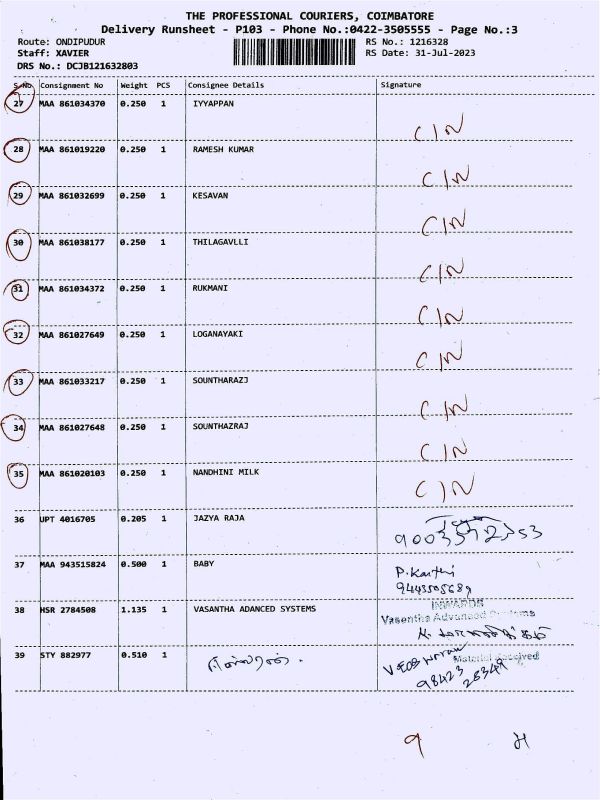 THE PROFESSIONAL COURIERS, COIMBATORE
Delivery Runsheet - P103 - Phone No.:0422-3505555 - Page No.:3
Route: ONDIPUDUR RS No.: 1216328
Staff: XAVIER RS Date: 31-Jul-2023
DRS No.: DCJB121632803
S.No Consignment No Weight PCS Consignee Details Signature
27 MAA 861034370 0.250 1 IYYAPPAN
C/N
28 MAA 861019220 0.250 1 RAMESH KUMAR
C/N
29 MAA 861032699 0.250 1 KESAVAN
C/N
30 MAA 861038177 0.250 1 THILAGAVLLI
C/N
31 MAA 861034372 0.250 1 RUKMANI
C/N
32 MAA 861027649 0.250 1 LOGANAYAKI
C/N
33 MAA 861033217 0.250 1 SOUNTHARAZJ
C/N
34 MAA 861027648 0.250 1 SOUNTHAZRAJ
C/N
35 MAA 861020103 0.250 1 NANDHINI MILK
C/N
36 UPT 4016705 0.205 1 JAZYA RAJA
37 MAA 943515824 0.500 1 BABY
P. Karthi
9443505689
38 HSR 2784508 1.135 1 VASANTHA ADANCED SYSTEMS
INWARDS
Vasantha Advanced Systems
39 STY 882977 0.510 1
Material Received
98423
28349
9